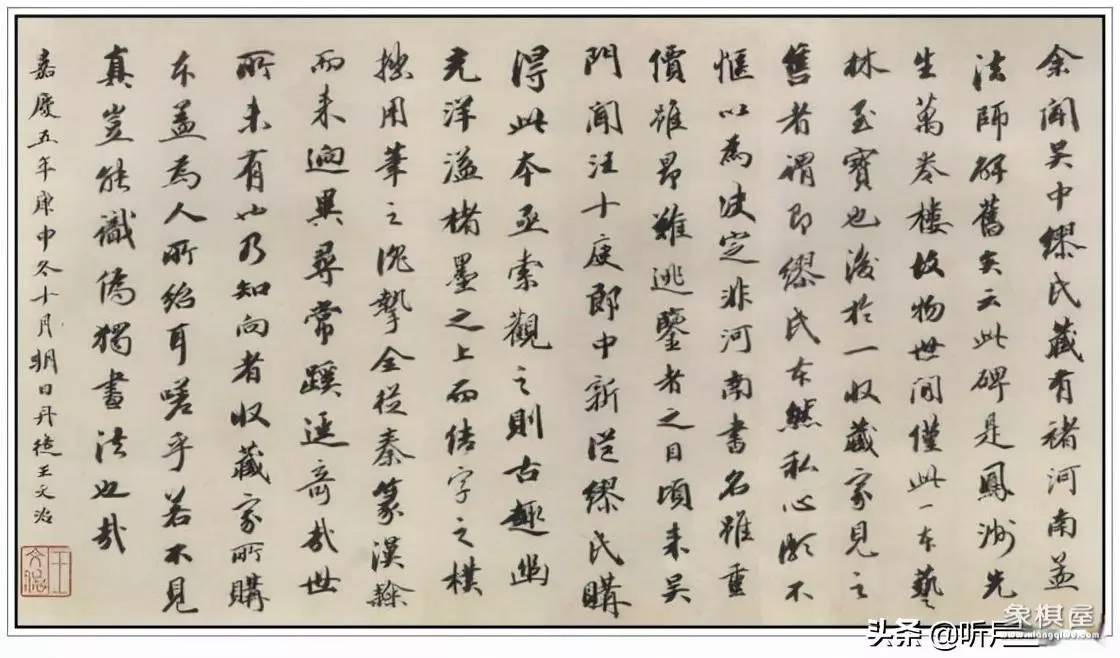 余聞吳中繆氏藏有褚河南孟
法師碑舊矣云此碑是鳳洲先
生萬卷樓故物世間僅此一本藝
林至寶也後於一收藏家見之
售者謂即繆氏本然私心頗不
愜以為決定非河南書名雖重
價雖昂難逃鑒者之目頃来吳
門聞汪十庚郎中新從繆氏購
得此本亟索觀之則古趣幽
光洋溢楮墨之上而结字之樸
拙用筆之沈摯全從秦篆漢隸
而来迥異尋常蹊逕奇哉世
所未有也乃知向者收藏家所購
本蓋為人所紿耳嗟乎若不見
真豈能識偽獨書法也哉
嘉慶五年庚申冬十月朔日丹徒王文治
王文治
象棋屋
www.xiangqiwu.com
头条 @听月